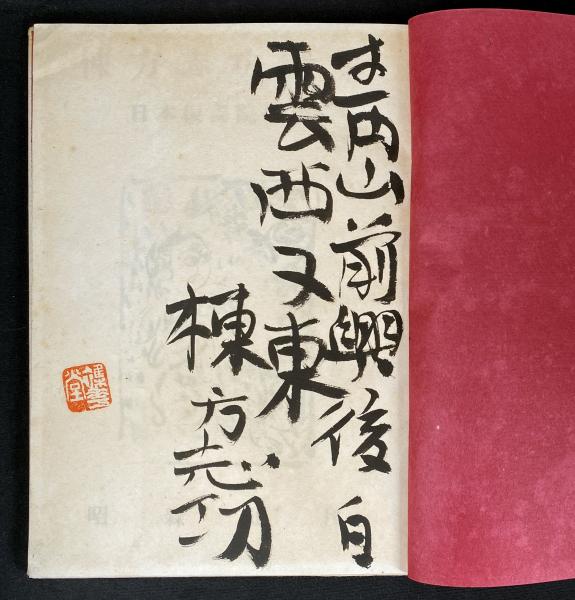 青山前與後白
雲西又東
棟方志功